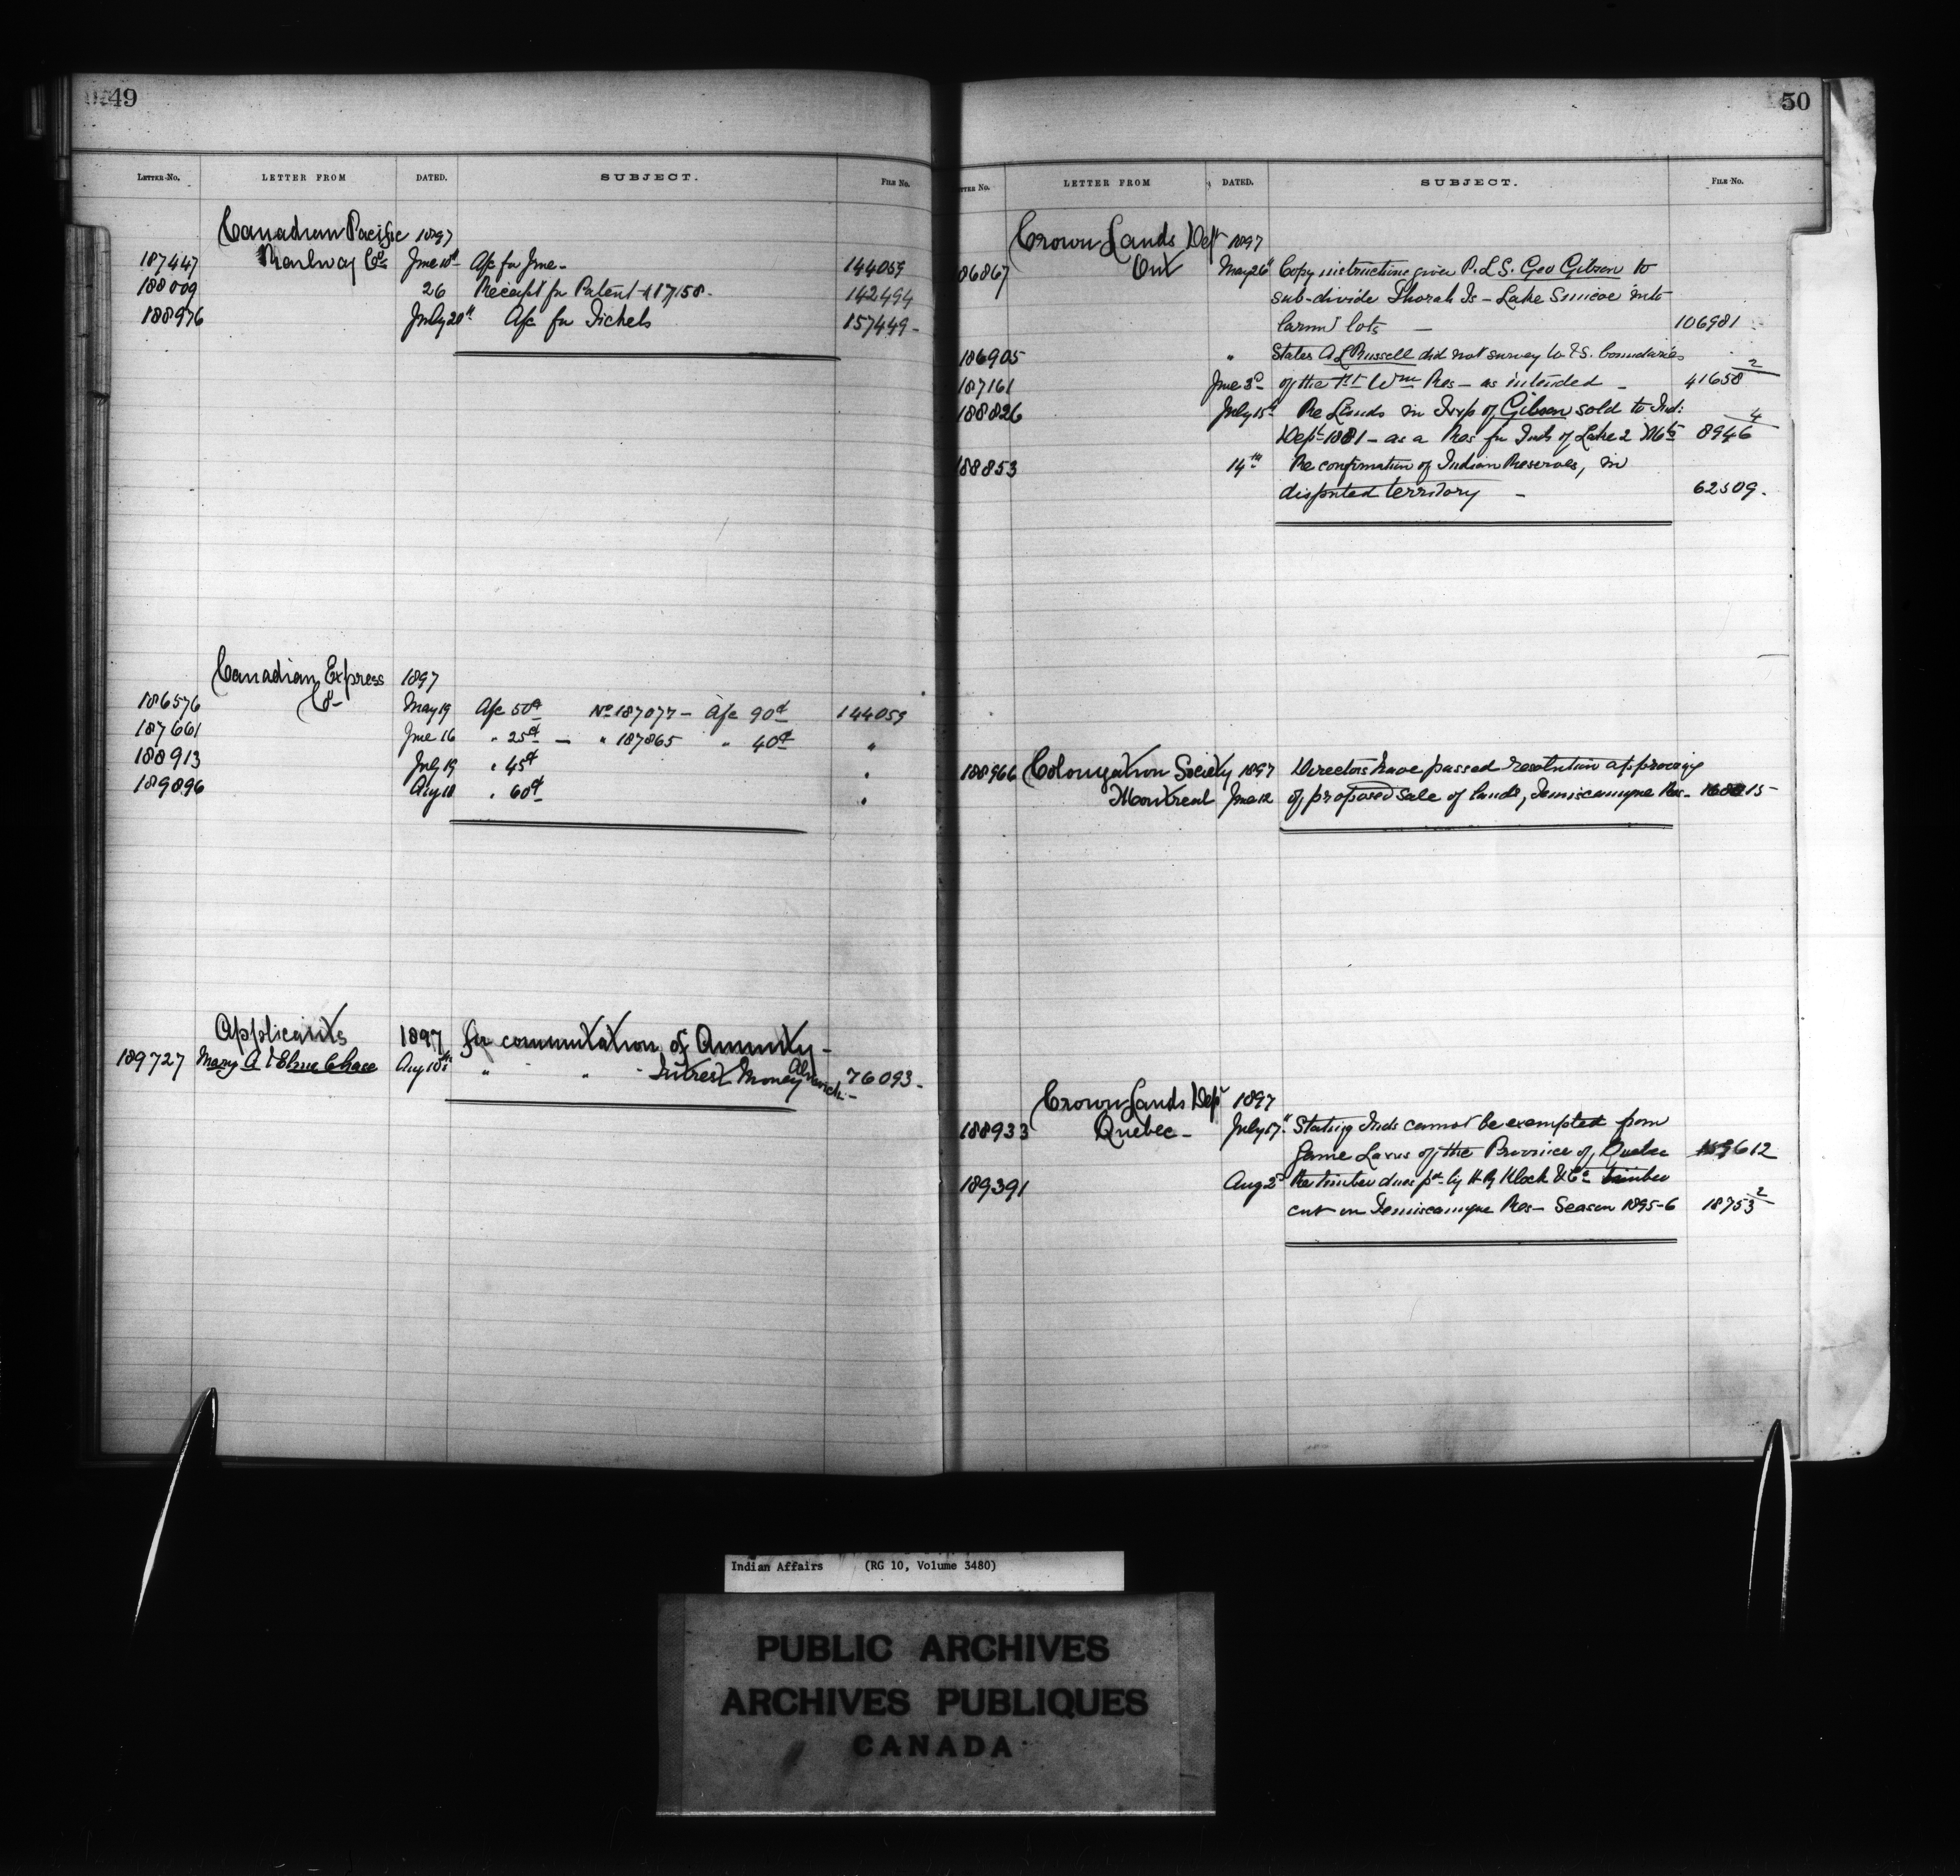 49
LETTER No. LETTER FROM DATED. SUBJECT. FILE No.
Canadian Pacific 1897
187447 Railway Co. June 10th A/c for June - 144059
188009 26 Receipt for Patent # 17158 - 142494
188976 July 20th A/c for Tickets 157449 -
Canadian Express 1897
Co -
186576 May 19 A/c 50¢ No 187077 - A/c 90¢ 144059
187661 June 16 " 25¢ - " 187865 " 40¢ "
188913 July 19 " 45¢ "
189896 Aug 18 " 60¢ "
Applicants 1897 for commutation of Annuity -
189727 Mary A Chase Aug 10th " " - Interest Money Alnwick - 76093 -
50
LETTER No. LETTER FROM DATED. SUBJECT. FILE No.
Crown Lands Dept 1897
86867 Ont May 26th Copy instructions given P.L.S. Geo Gibson to
sub-divide Thorah Is - Lake Simcoe into
farm lots - 106981
186905 " States A L Russell did not survey W & S. boundaries
187161 June 3d of the Ft Wm Res - as intended - 41658 2
188826 July 15 Re Lands in Twp of Gibson sold to Ind:
Dept 1881 - as a Res for Inds of Lake 2 Mts 8946 4
188853 14th Re confirmation of Indian Reserves, in
disputed territory - 62509.
188966 Colonization Society 1897 Directors have passed resolution approving
Montreal June 12 of proposed sale of lands, Temiscamque Res - 15 -
Crown Lands Dept 1897
188933 Quebec - July 17th Stating Inds cannot be exempted from
Game Laws of the Province of Quebec 612
189391 Aug 2d Re timber dues pd by H R Klock & Co timber
cut on Temiscamque Res - Season 1895-6 18753 2
Indian Affairs (RG 10, Volume 3480)
PUBLIC ARCHIVES
ARCHIVES PUBLIQUES
CANADA